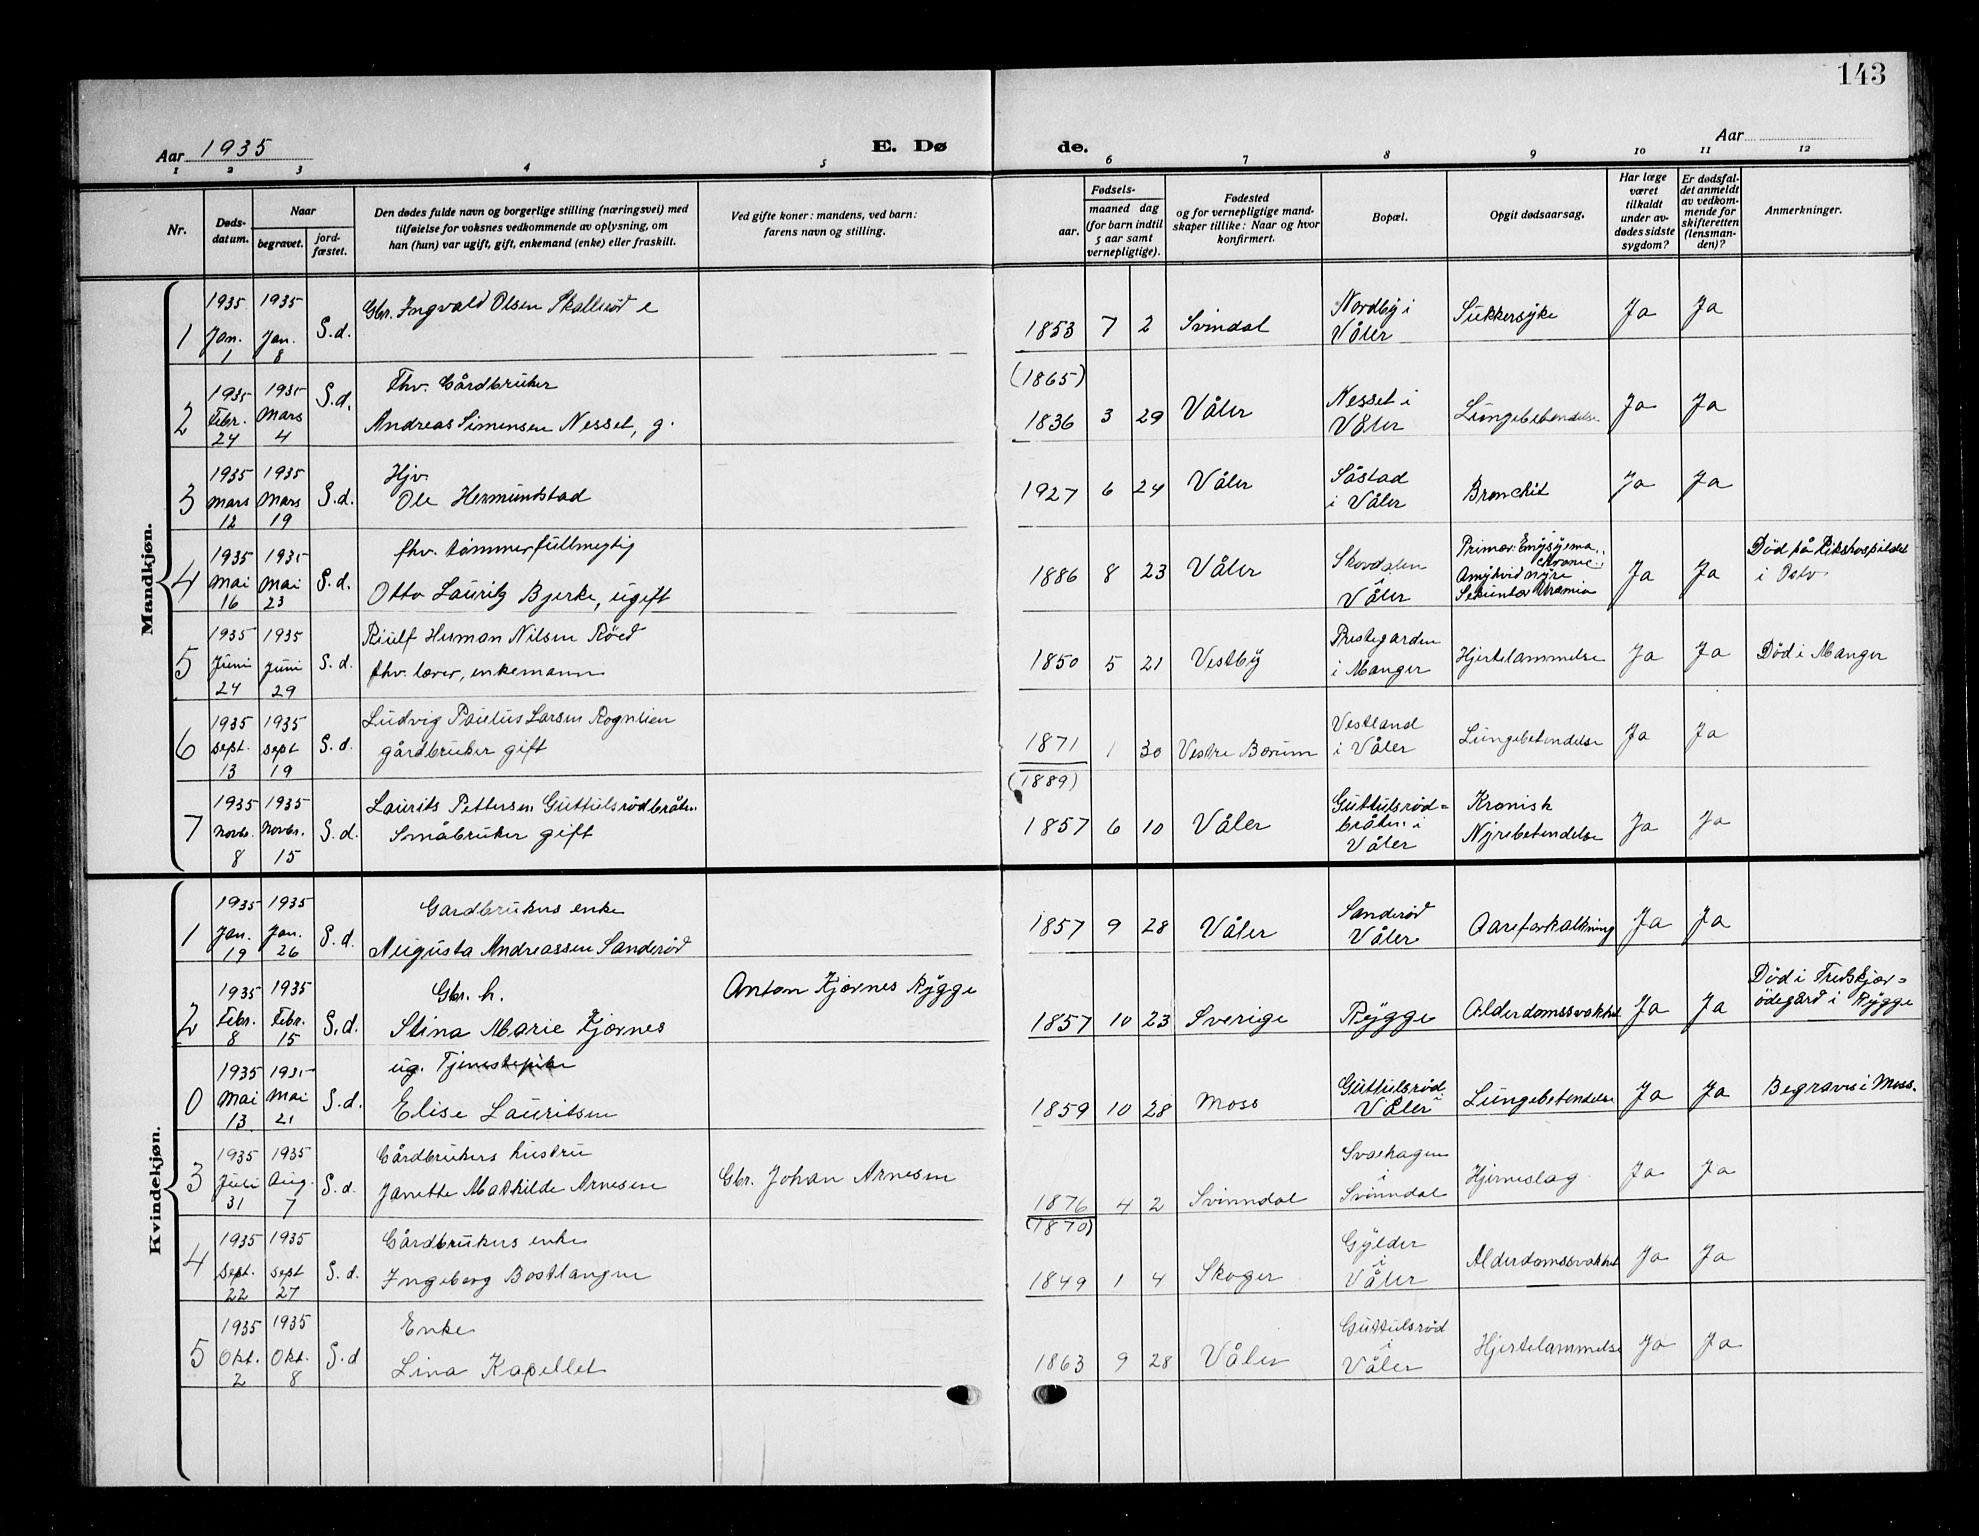 143
Aar 1935 E. Dø de. Aar
1 2 3 4 5 6 7 8 9 10 11 12
Nr.
Døds-
datum.
Naar
begravet.
jord-
fæstet.
Den dødes fulde navn og borgerlige stilling (næringsvei) med
tilføielse for voksnes vedkommende av oplysning, om
han (hun) var ugift, gift, enkemand (enke) eller fraskilt.
Ved gifte koner: mandens, ved barn:
farens navn og stilling.
Fødsels-
aar.
maaned dag
(for barn indtil
5 aar samt
vernepligtige).
Fødested
og for vernepligtige mand-
skaper tillike: Naar og hvor
konfirmert.
Bopæl.
Opgit dødsaarsag.
Har læge
været
tilkaldt
under av-
dødes sidste
sygdom?
Er dødsfal-
det anmeldt
av vedkom-
mende for
skifteretten
(lensman-
den)?
Anmerkninger.
Mandkjøn.
1 1935 Jan. 1 1935 Jan. 8 S.d.
Gbr. Ingvald Olsen Skallerød e
1853 7 2 Svindal
Nordby i
Våler
Sukkersyke Ja Ja
2 1935 Febr. 24 1935 Mars 4 S.d.
Fhv. Gårdbruker
Andreas Simensen Nesset, g.
(1865)
1836 3 29 Våler
Nesset i
Våler
Lungebetendelse Ja Ja
3 1935 Mars 12 1935 Mars 19 S.d.
Hjv.
Ole Hermundstad
1927 6 24 Våler
Såstad
i Våler
Bronchit Ja Ja
4 1935 Mai 16 1935 Mai 23 S.d.
fhv. tømmerfullmegtig
Otto Lauritz Bjerke, ugift
1886 8 23 Våler
Skovdalen
i
Våler
Primær: Emysyema
chronic.
Sekundær Uræmia
Ja Ja
Død på Rikshospitalet
i Oslo
5 1935 Juni 24 1935 Juni 29 S.d.
Riulf Herman Nilsen Röed
fhv. lærer, enkemann
1850 5 21 Vestby
Prestegarden
i Manger
Hjertelammelse Ja Ja Død i Manger
6 1935 Sept. 13 1935 Sept 19 S.d.
Ludvig Paulus Larsen Rognlien
gårdbruker gift
1871 1 30 Vestre Bærum
Vestland
i Våler
Lungebetendelse Ja Ja
7 1935 Novbr. 8 1935 Novbr. 15 S.d.
Laurits Pettersen Guttulsrødbråten
Småbruker gift
(1889)
1857 6 10 Våler
Guttulsrød=
bråten i
Våler
Kronisk
Nyrebetendelse
Ja Ja
Kvindekjøn.
1 1935 Jan. 19 1935 Jan. 26 S.d.
Gardbrukers enke
Augusta Andreassen Sanderød
1857 9 28 Våler
Sanderød
Våler
Aareforkalkning Ja Ja
2 1935 Febr. 8 1935 Febr. 15 S.d.
Gbr. h.
Stina Marie Kjærnes
Anton Kjærnes Rygge
1857 10 23 Sverige Rygge Alderdomssvakhet Ja Ja
ødegård i Rygge
0 1935 Mai 13 1935 Mai 21 S.d.
ug. Tjenestepike
Elise Lauritsen
1859 10 28 Moss
Guttulsrød
i
Våler
Lungebetendelse Ja Ja Begraves i Moss.
3 1935 Juli 31 1935 Aug. 7 S.d.
Gårdbrukers hustru
Janette Mathilde Arnesen
Gbr. Johan Arnesen
1876 4 2 Svinndal
i
Svinndal
Hjerneslag Ja Ja
4 1935 Sept. 22 1935 Sept 27 S.d.
Gårdbrukers enke
Ingeborg Bostlangen
(1870)
1849 1 4 Skoger
Gylder
i
Våler
Alderdomssvakhet Ja Ja
5 1935 Okt. 2 1935 Okt. 8 S.d
Enke
Lina Kapellet
1863 9 28 Våler
Guttulsrød
i
Våler
Hjertelammelse Ja Ja